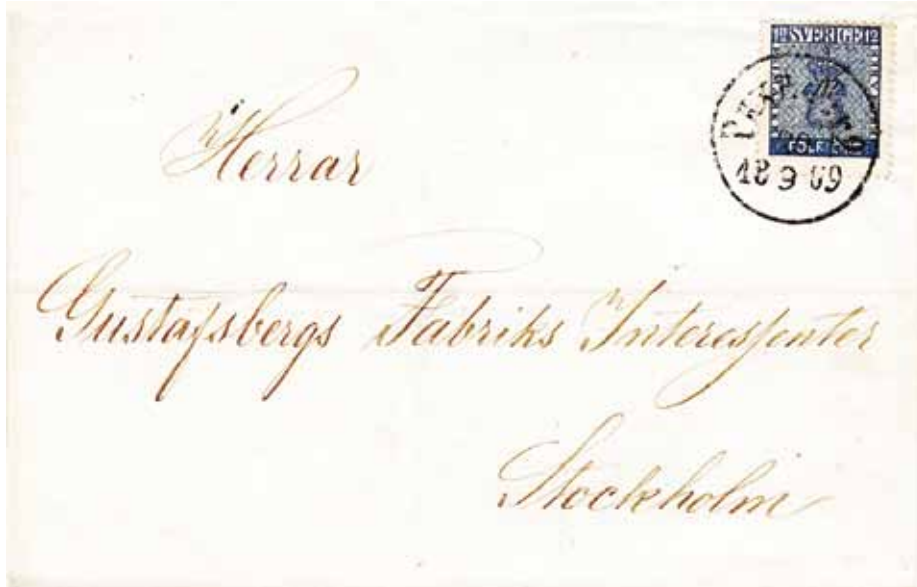 12 SVERIGE 12
18 9 69
Herrar
Gustafsbergs Fabriks Interessenter
Stockholm